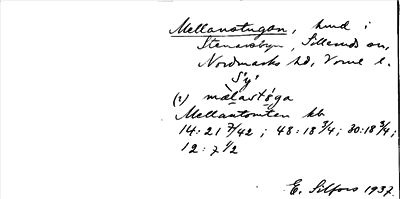 Mellanstugan, hmd i
Stenarsbyn, Sillerud sn,
Nordmarks hd, Vrml l.
S'y'
(:) mälastöga
Mellantomten hb
14:21 7/42; 48:18 3/4; 30:18 3/4;
12:7 1/2
E. Silfors 1937.